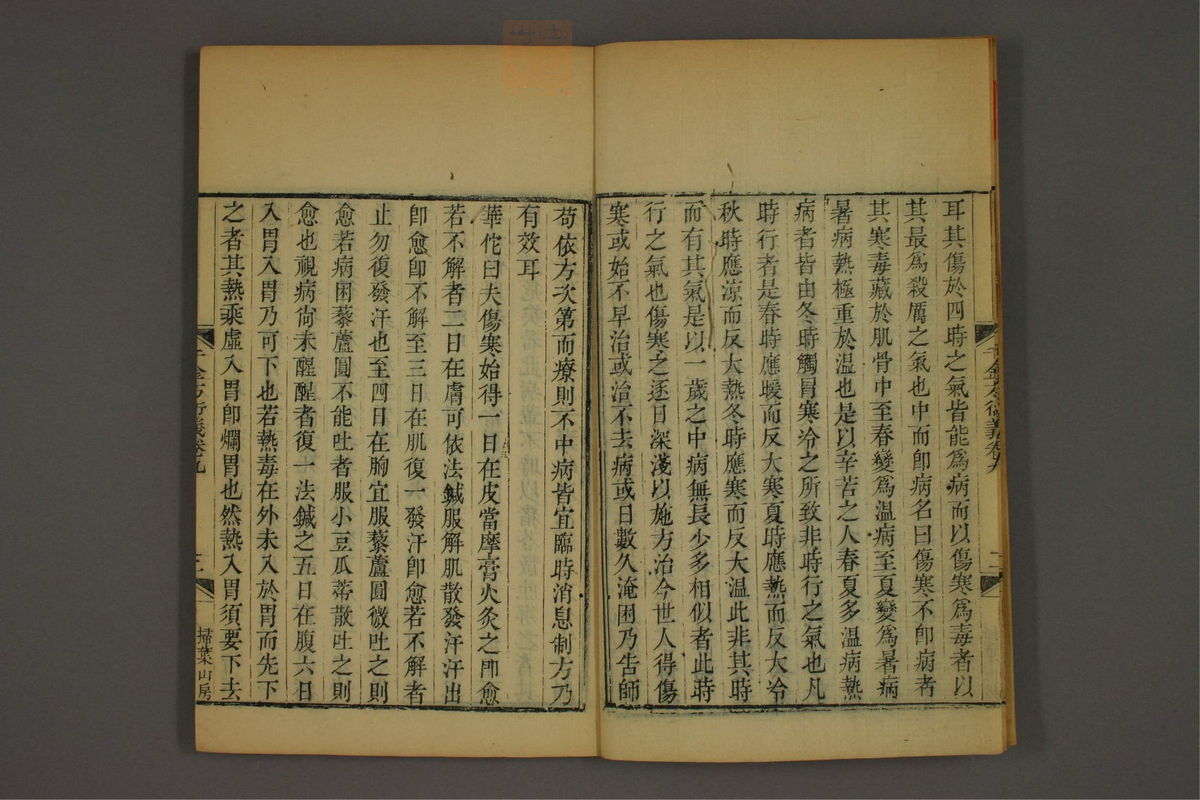 耳其傷於四時之氣皆能爲病而以傷寒爲毒者以
其最爲殺厲之氣也中而卽病名曰傷寒不卽病者
其寒毒藏於肌骨中至春變爲溫病至夏變爲暑病
暑病熱極重於溫也是以辛苦之人春夏多溫病熱
病者皆由冬時觸冒寒冷之所致非時行之氣也凡
時行者是春時應暖而反大寒夏時應熱而反大冷
秋時應涼而反大熱冬時應寒而反大溫此非其時
而有其氣是以一歲之中病無長少多相似者此時
行之氣也傷寒之逐日深淺以施方治今世人得傷
寒或始不早治或治不去病或日數久淹困乃吿師
苟依方次第而療則不中病皆宜臨時消息制方乃
有效耳
華佗曰夫傷寒始得一日在皮當摩膏火灸之卽愈
若不解者二日在膚可依法鍼服解肌散發汗汗出
卽愈卽不解至三日在肌復一發汗卽愈若不解者
止勿復發汗也至四日在胸宜服藜蘆圓微吐之則
愈若病困藜蘆圓不能吐者服小豆瓜蒂散吐之則
愈也視病尙未醒醒者復一法鍼之五日在腹六日
入胃入胃乃可下也若熱毒在外未入於胃而先下
之者其熱乘虛入胃卽爛胃也然熱入胃須要下去
千金方衍義卷九
三
掃葉山房